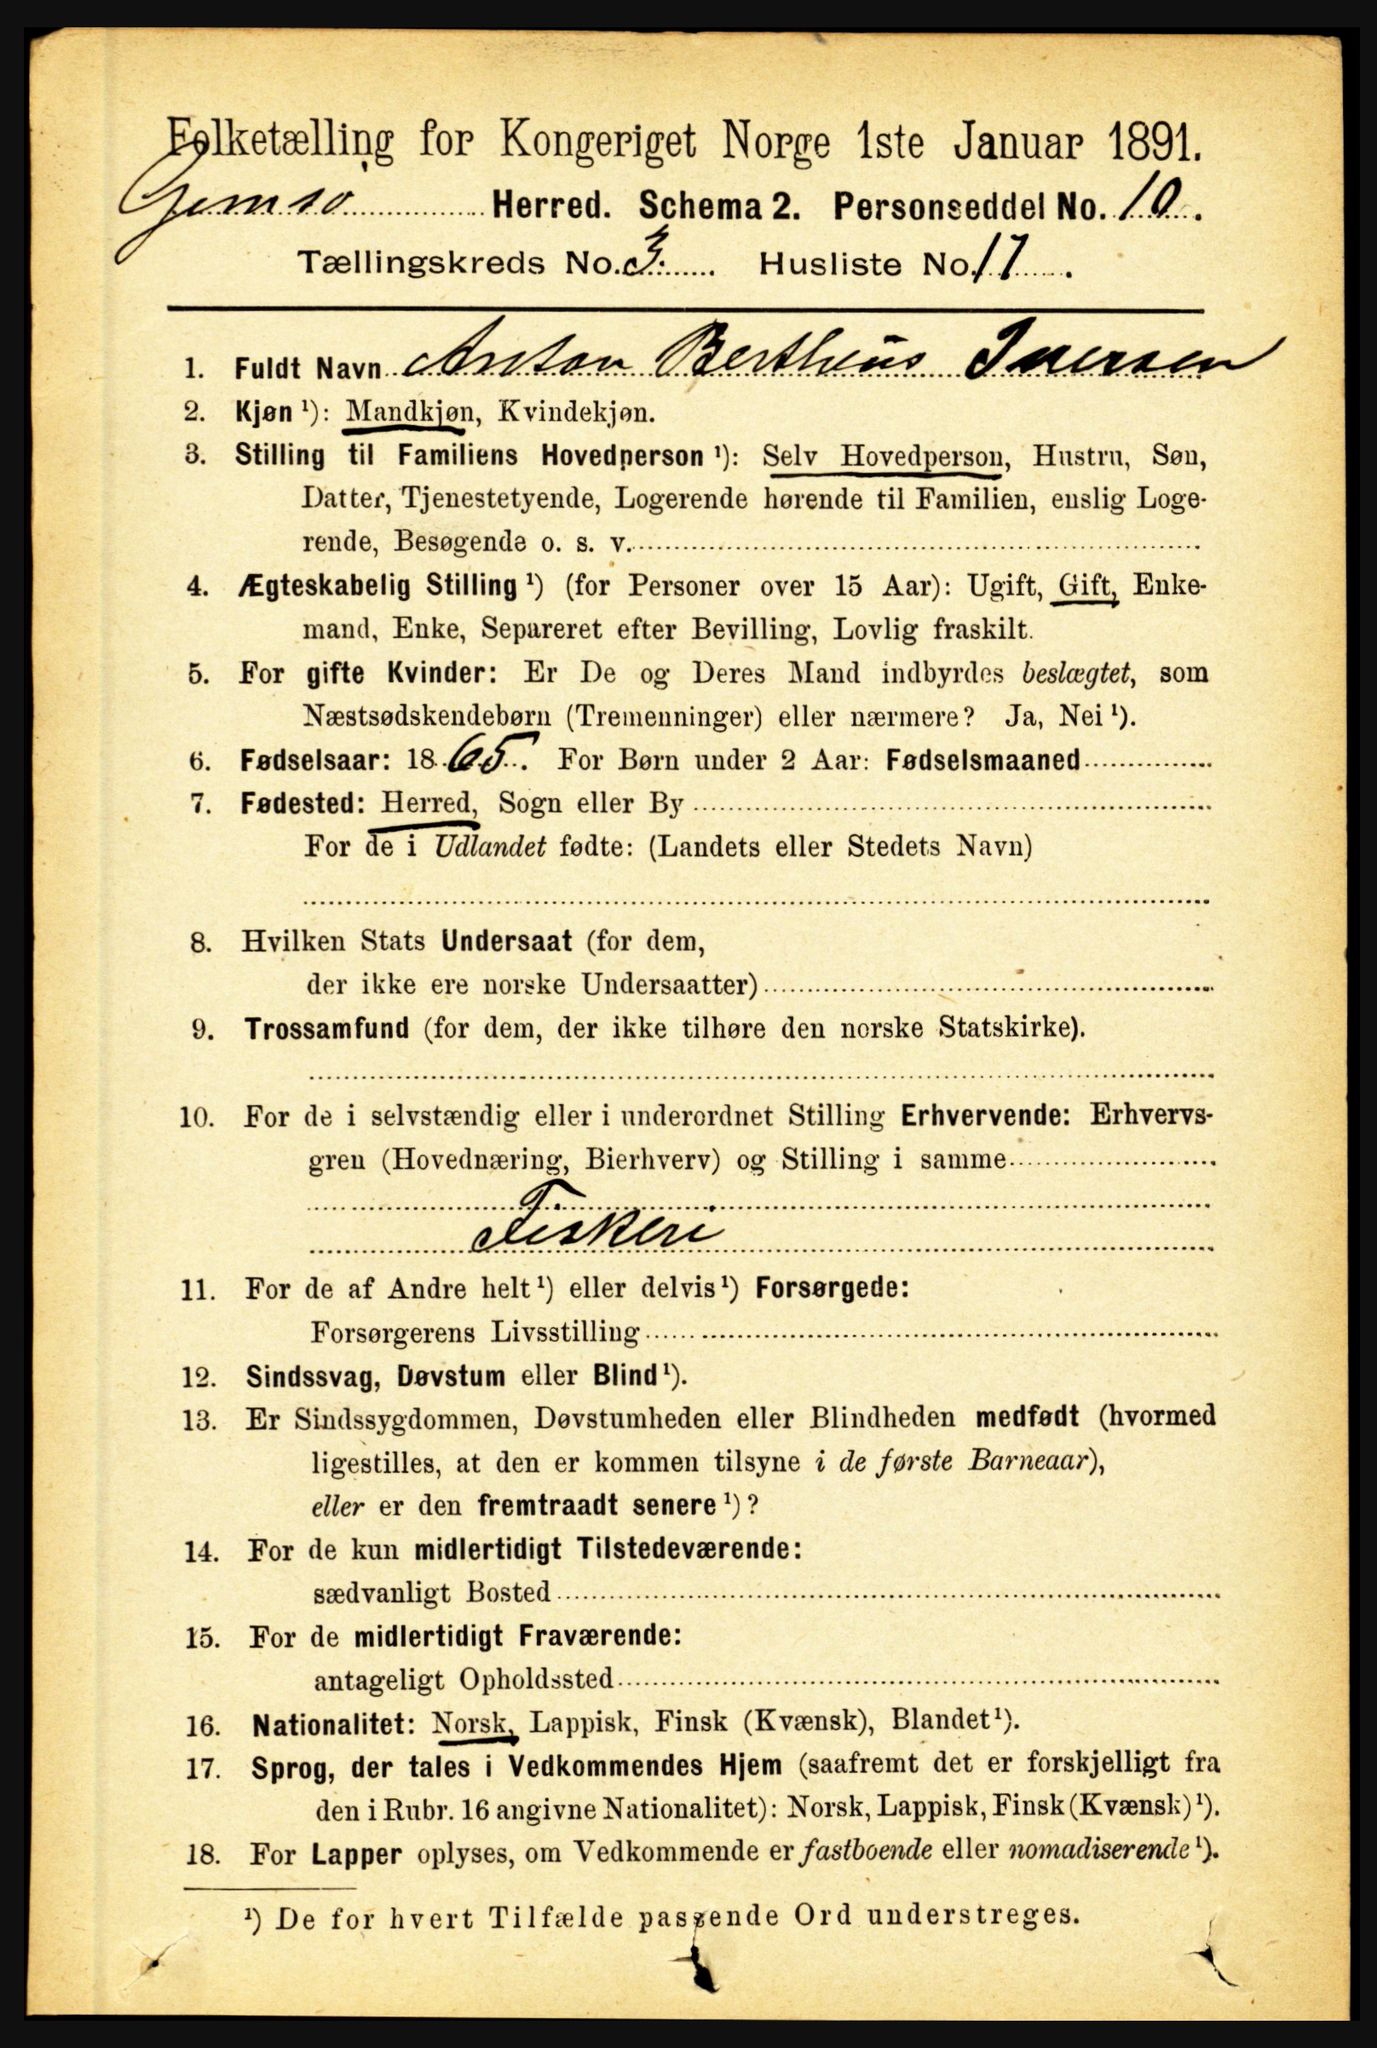 Folketælling for Kongeriget Norge 1ste Januar 1891.
Gimsø Herred. Schema 2. Personseddel No. 10.
Tællingskreds No. 3. Husliste No. 17.
1. Fuldt Navn Anton Bertheus Iversen
2. Kjøn ¹): Mandkjøn, Kvindekjøn.
3. Stilling til Familiens Hovedperson ¹): Selv Hovedperson, Hustru, Søn,
Datter, Tjenestetyende, Logerende hørende til Familien, enslig Loge-
rende, Besøgende o. s. v.
4. Ægteskabelig Stilling ¹) (for Personer over 15 Aar): Ugift, Gift, Enke-
mand, Enke, Separeret efter Bevilling, Lovlig fraskilt.
5. For gifte Kvinder: Er De og Deres Mand indbyrdes beslægtet, som
Næstsødskendebørn (Tremenninger) eller nærmere? Ja, Nei ¹).
6. Fødselsaar: 1865. For Børn under 2 Aar: Fødselsmaaned
7. Fødested: Herred, Sogn eller By
For de i Udlandet fødte: (Landets eller Stedets Navn)
8. Hvilken Stats Undersaat (for dem,
der ikke ere norske Undersaatter)
9. Trossamfund (for dem, der ikke tilhøre den norske Statskirke).
10. For de i selvstændig eller i underordnet Stilling Erhvervende: Erhvervs-
gren (Hovednæring, Bierhverv) og Stilling i samme
Fiskeri
11. For de af Andre helt ¹) eller delvis ¹) Forsørgede:
Forsørgerens Livsstilling
12. Sindssvag, Døvstum eller Blind ¹).
13. Er Sindssygdommen, Døvstumheden eller Blindheden medfødt (hvormed
ligestilles, at den er kommen tilsyne i de første Barneaar),
eller er den fremtraadt senere ¹)?
14. For de kun midlertidigt Tilstedeværende:
sædvanligt Bosted
15. For de midlertidigt Fraværende:
antageligt Opholdssted
16. Nationalitet: Norsk, Lappisk, Finsk (Kvænsk), Blandet ¹).
17. Sprog, der tales i Vedkommendes Hjem (saafremt det er forskjelligt fra
den i Rubr. 16 angivne Nationalitet): Norsk, Lappisk, Finsk (Kvænsk) ¹).
18. For Lapper oplyses, om Vedkommende er fastboende eller nomadiserende ¹).
¹) De for hvert Tilfælde passende Ord understreges.